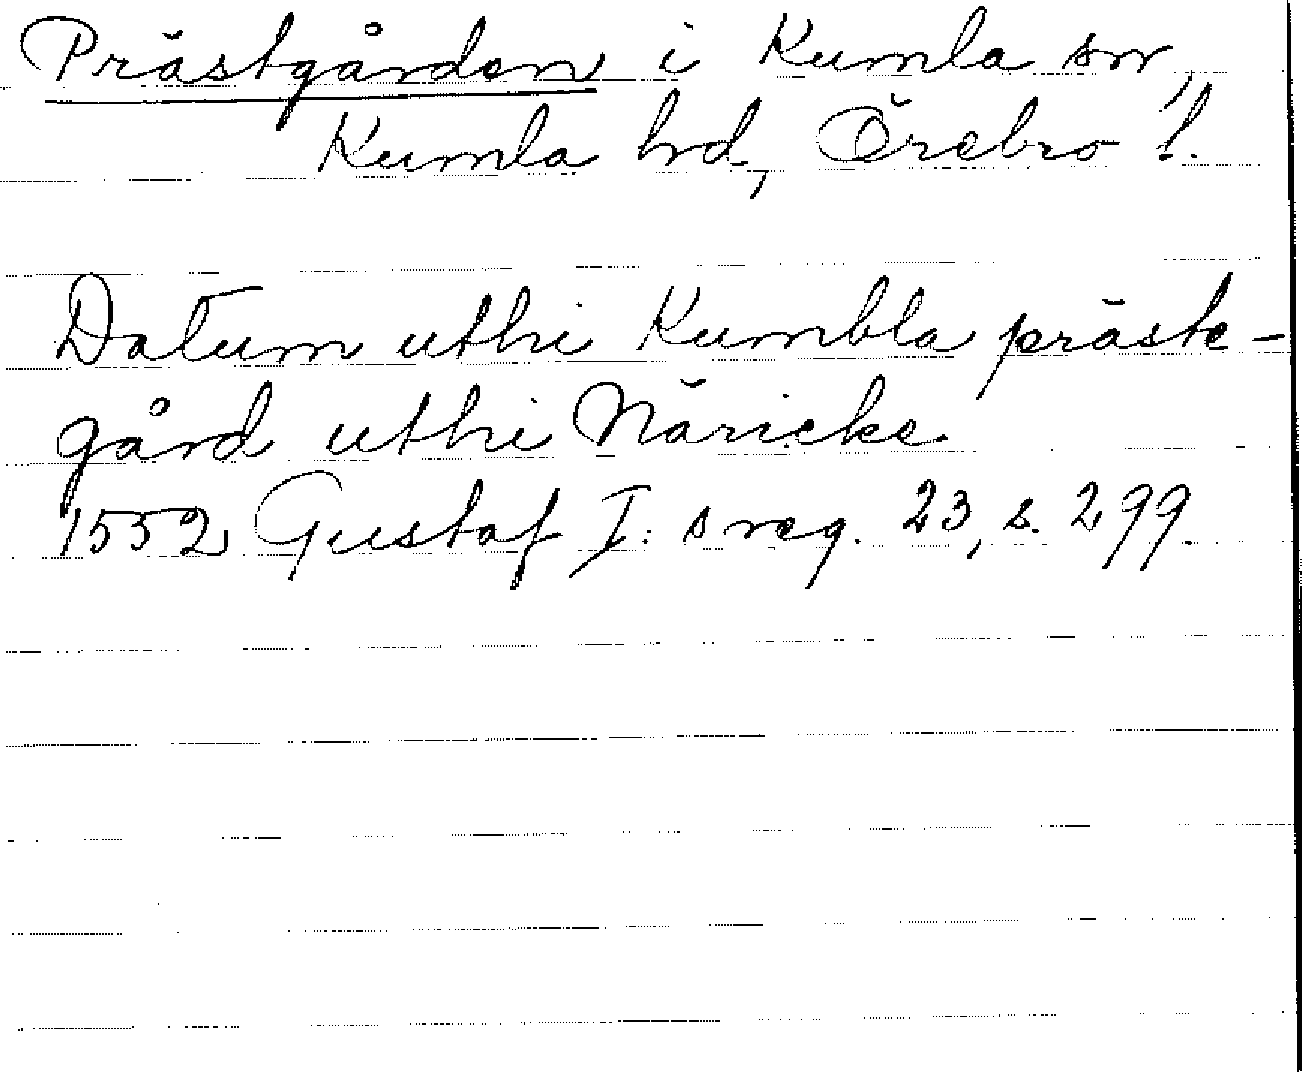 Prästgården i Kumla sn,
Kumla hd, Örebro l.
Datum uthi Kumbla präste-
gård uthi Näricke.
1552 Gustaf I:s reg. 23, s. 299.